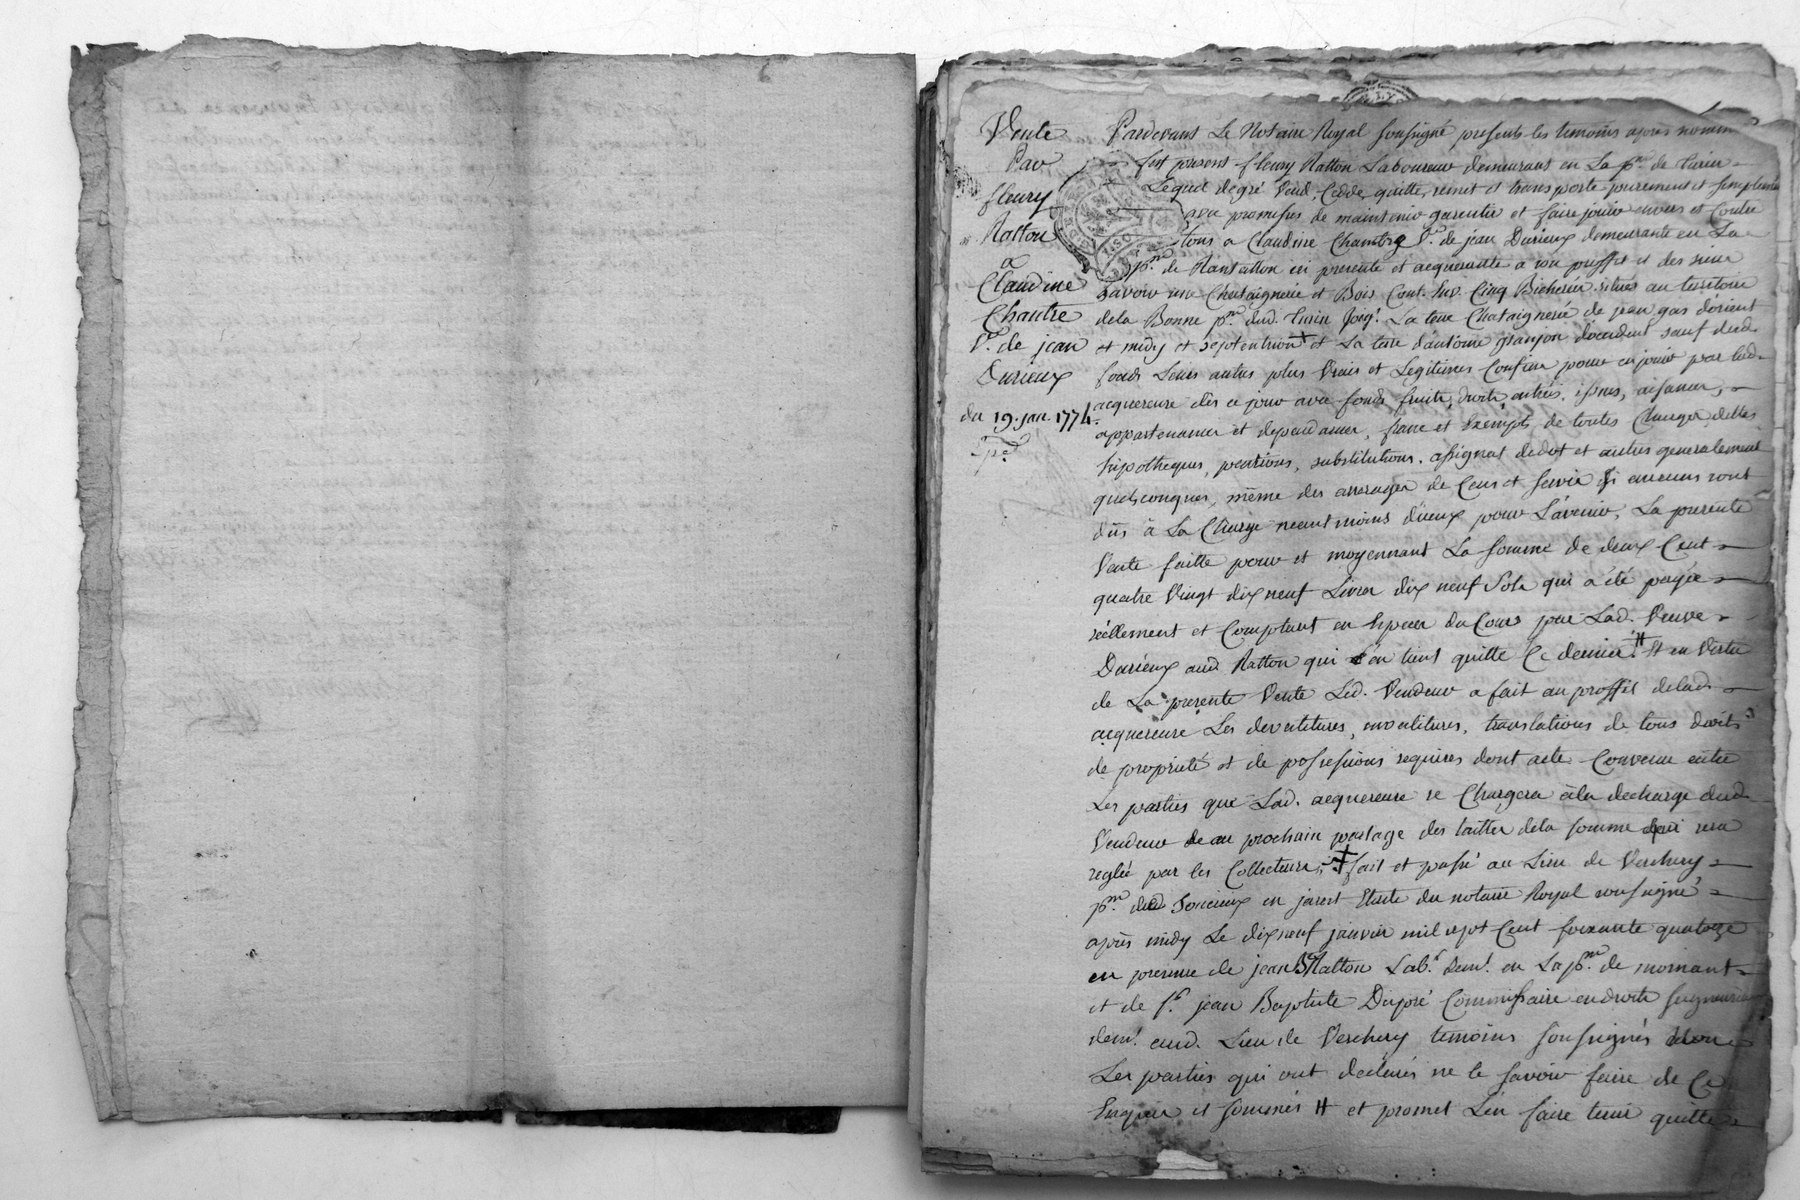 Vente
Par
fleury
Natton
a
Claudine
Chantre
Ve. de jean
Durieux
du 19. jan. 1774.
Pardevant Le Notaire Royal soussigné presents les temoins apres nommés
fut present fleury Natton Laboureur demeurant en La psse. de
Lequel de gré Vend, Cede, quitte, remet et transporte purement et simplement
avec promesses de maintenir garentir et faire jouir envers et Contre
tous a Claudine Chantre Ve. de jean Durieux demeurante en La
psse. de ici presente et acquereuse a son proffit et des siens
savoir une Chataignerie et Bois Cont. env. Cinq Bicherées situés au territoire
dela Bonne psse. dud. joig. La terre Chataignerie de jean gas d'orient
et midy et septentrion + et La terre d'antoine granjon d'occident sauf dud.
fonds Leurs autres plus Vrais et Legitimes Confins pour en jouir par lad.
acquereure dès ce jour avec fonds, fruits, droits, entrées, issues, aisances,
appartenances et dependances, franc et Exempts de toutes Charges, dettes
hipotheques, pensions, substitutions, assignat de dot et autres generalement
quelsconques, même des arrerages de Cens et servis si aucuns sont
dûs à La Charge neantmoins d'iceux pour L'avenir, La presente
Vente faitte pour et moyennant La somme de deux Cent
quatre Vingt dix neuf Livres dix neuf Sols qui a été payée
réellement et Comptant en Especes du Cours par Lad. Veuve
Durieux aud Natton qui s'en tient quitte Ce dernier. # Et en Vertu
de La presente Vente Led. Vendeur a fait au proffit delad.
acquereure Les devestitures, investitures, translations de tous droits
de proprieté et de possessions requises dont acte Convenu entre
Les parties que Lad. acquereure se Chargera à la decharge dud.
Vendeur au prochain partage des tailles dela somme qui sera
reglée par les Collecteurs, + fait et passé au Lieu de Verchery
psse. de Sorcieux en jarest Etude du notaire Royal soussigné
après midy Le dixneuf janvier mil sept Cent soixante quatorze
en presence de jean Natton Labr. demt. en La psse. de mornant
et de Sr. jean Baptiste Dupré Commissaire en droits seigneuriaux
demt. aud. Lieu de Verchery temoins soussignés non
Les parties qui ont declarés ne le savoir faire de Ce
Enquis et sommés # et promet L'en faire tenir quitte